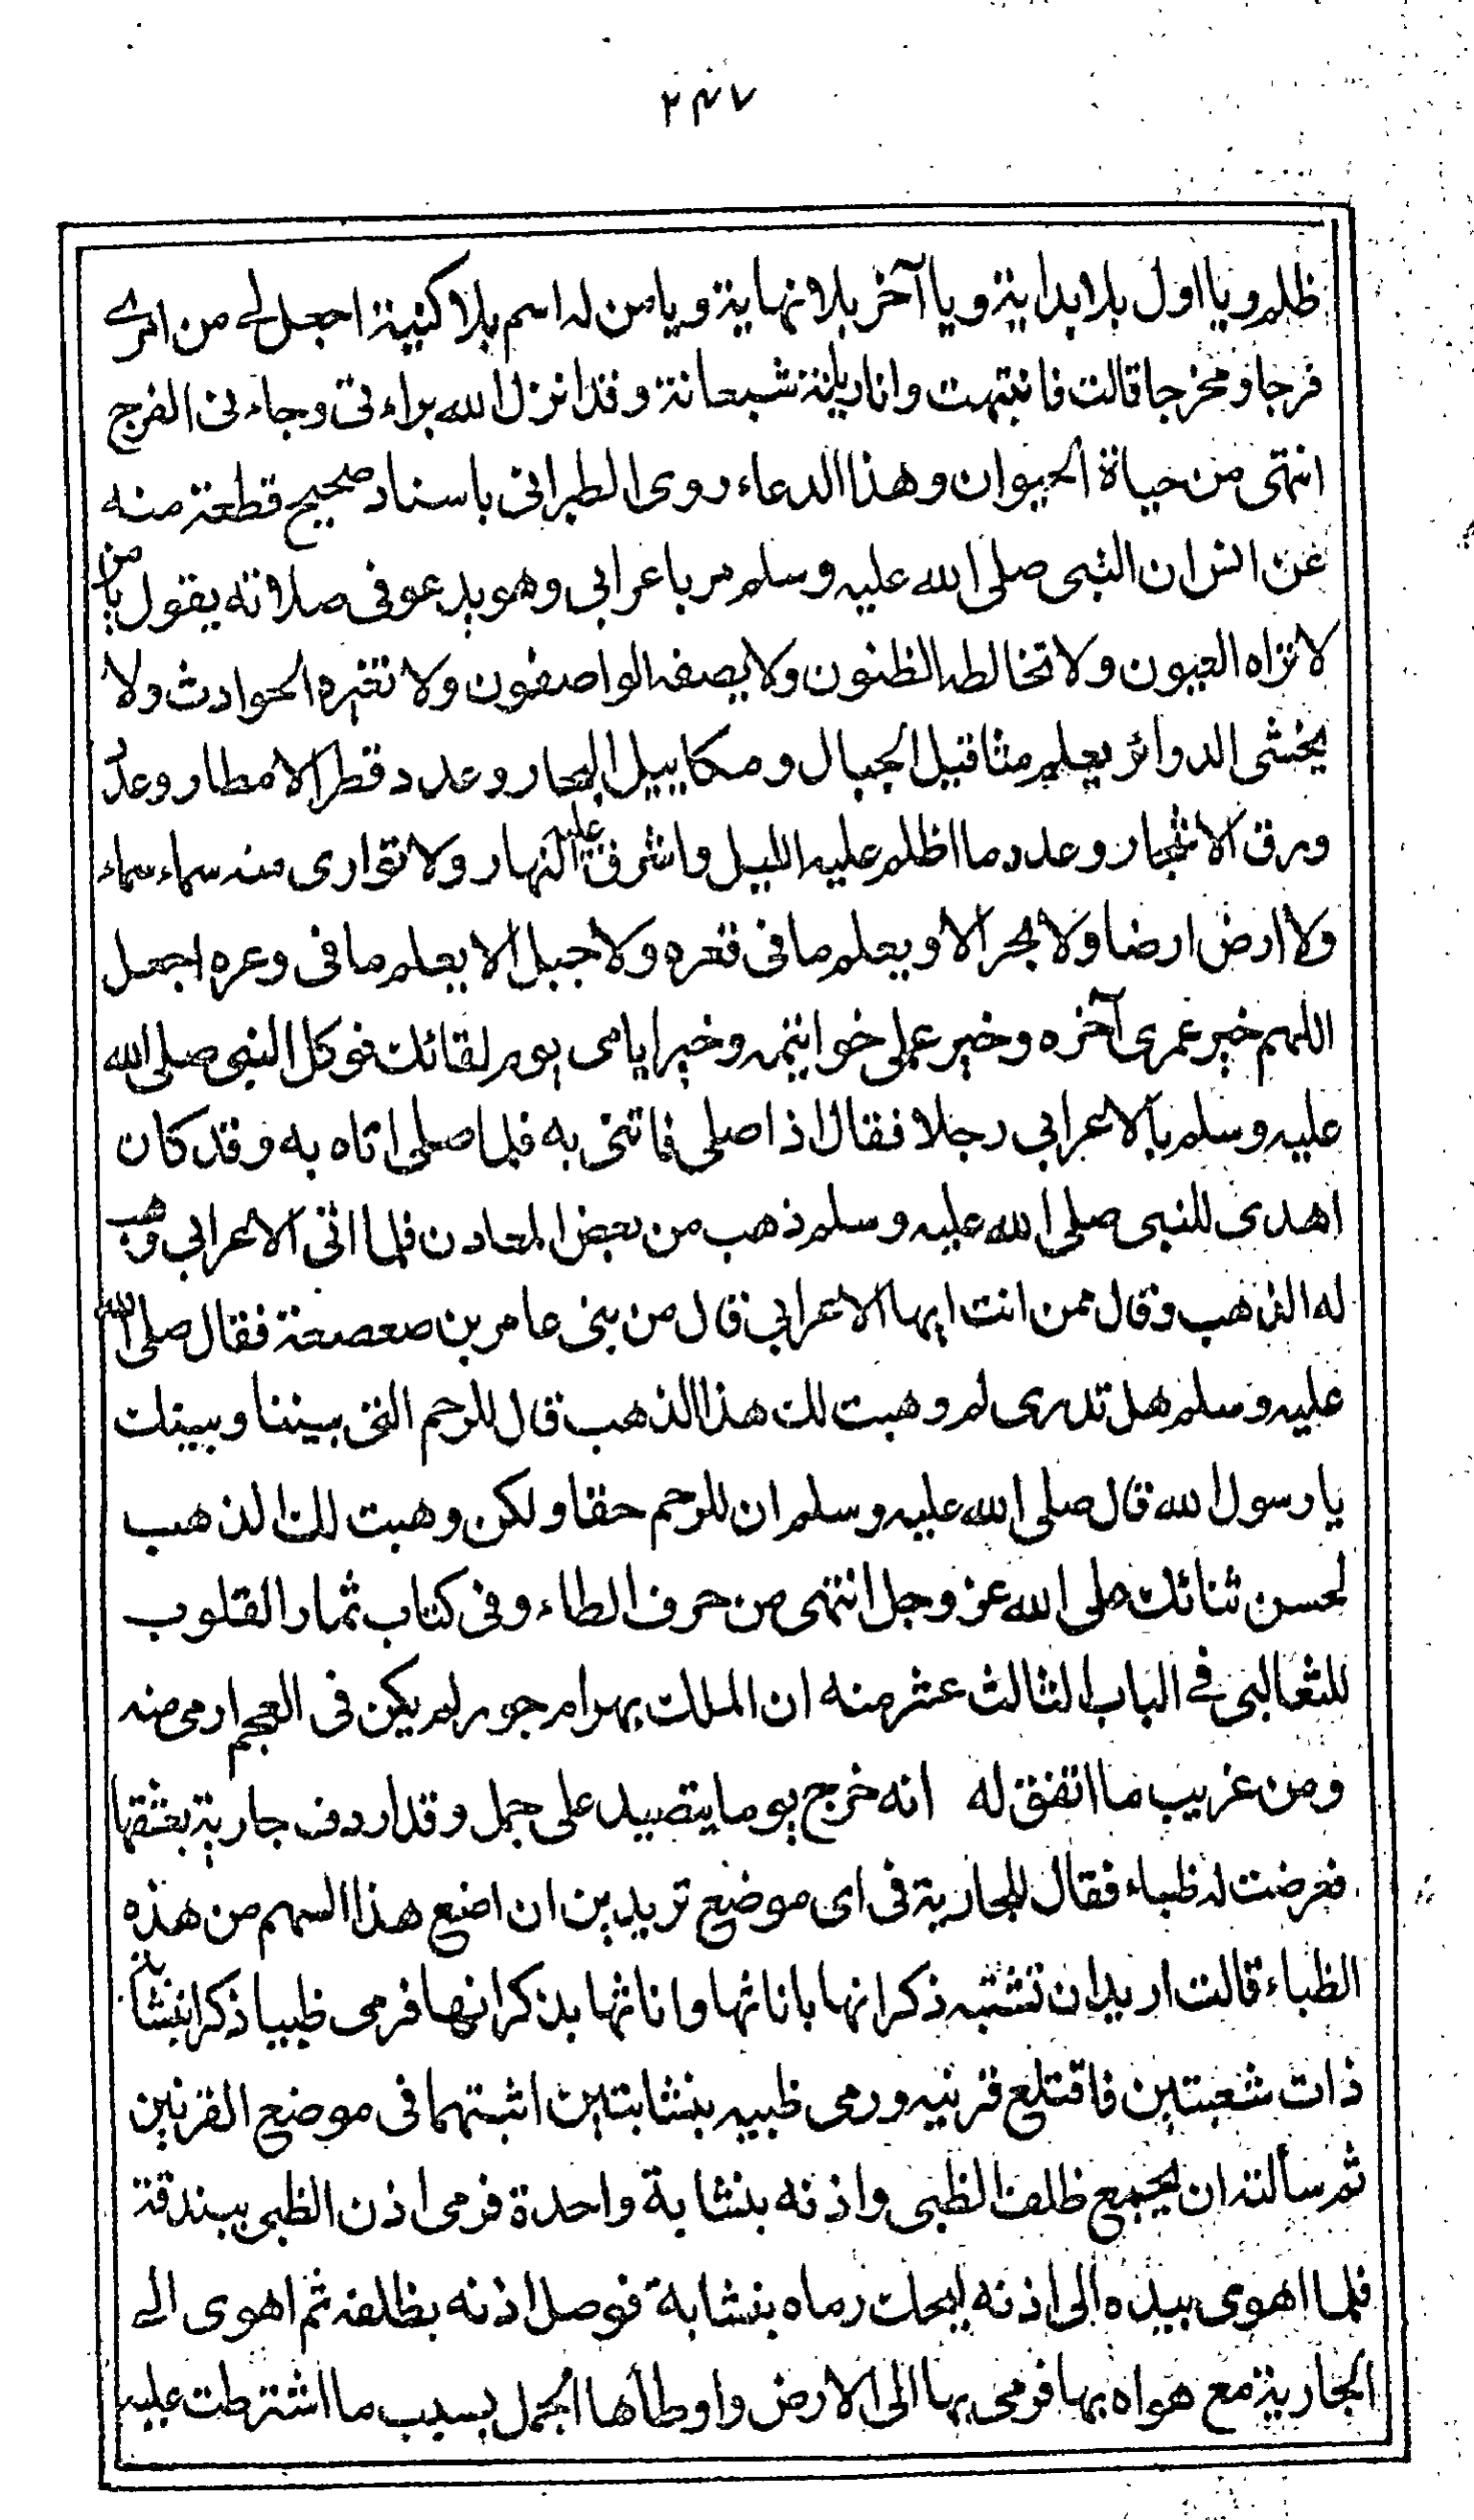 ٢٤٧
ظلم ويا اول بلا بداية ويا آخر بلا نهاية ويا من له اسم بلا كنية اجعل لے من امرے
فرجا ومخرجا قالت فانتبهت وانا ريانة شبعانة وقد انزل الله براءتى وجاءنى الفرج
انتهى من حياة الحيوان وهذا الدعاء روى الطبرانى باسناد صحيح قطعة منه
عن انس ان النبى صلى الله عليه وسلم مر باعرابي وهو يدعو فى صلاته يقول يا من
لا تراه العيون ولا تخالطه الظنون ولا يصفه الواصفون ولا تغيره الحوادث ولا
يخشى الدوائر يعلم مثاقيل الجبال ومكاييل البحار وعدد قطر الامطار وعدد
ورق الاشجار وعدد ما اظلم عليه الليل واشرق عليه النهار ولا توارى منه سماء سماء
ولا ارض ارضا ولا بحر الا ويعلم ما فى قعره ولا جبل الا يعلم ما فى وعره اجعل
اللهم خير عمرى آخره وخير عملى خواتيمه وخير ايامى يوم لقائك فوكل النبى صلى الله
عليه وسلم بالاعرابي رجلا فقال اذا صلى فاتنى به فلما صلى اتاه به وقد كان
اهدى للنبى صلى الله عليه وسلم ذهب من بعض المعادن فلما اتى الاعرابي وهب
له الذهب وقال ممن انت ايها الاعرابي قال من بنى عامر بن صعصعة فقال صلى الله
عليه وسلم هل تدرى لم وهبت لك هذا الذهب قال للرحم التى بيننا وبينك
يا رسول الله قال صلى الله عليه وسلم ان للرحم حقا ولكن وهبت لك الذهب
لحسن ثنائك على الله عز وجل انتهى من حرف الطاء وفى كتاب ثمار القلوب
للثعالبى فے الباب الثالث عشر منه ان الملك بهرام جور لم يكن فى العجم ارمى منه
ومن غريب ما اتفق له انه خرج يوما يتصيد على جمل وقد اردف جارية يعشقها
فعرضت له ظباء فقال للجارية فى اى موضع تريدين ان اضع هذا السهم من هذه
الظباء قالت اريد ان تشبه ذكرانها باناثها واناثها بذكرانها فرمى ظبيا ذكرا بنشابة
ذات شعبتين فاقتلع قرنيه ورمى ظبيه بنشابتين اثبتهما فى موضع القرنين
ثم سألته ان يجمع ظلف الظبى واذنه بنشابة واحدة فرمى اذن الظبى ببندقة
فلما اهوى بيده الى اذنه ليحك رماه بنشابة فوصل اذنه بظلفه ثم اهوى الے
الجارية مع هواه بها فرمى بها الى الارض واوطأها الجمل بسبب ما اشترطت عليه